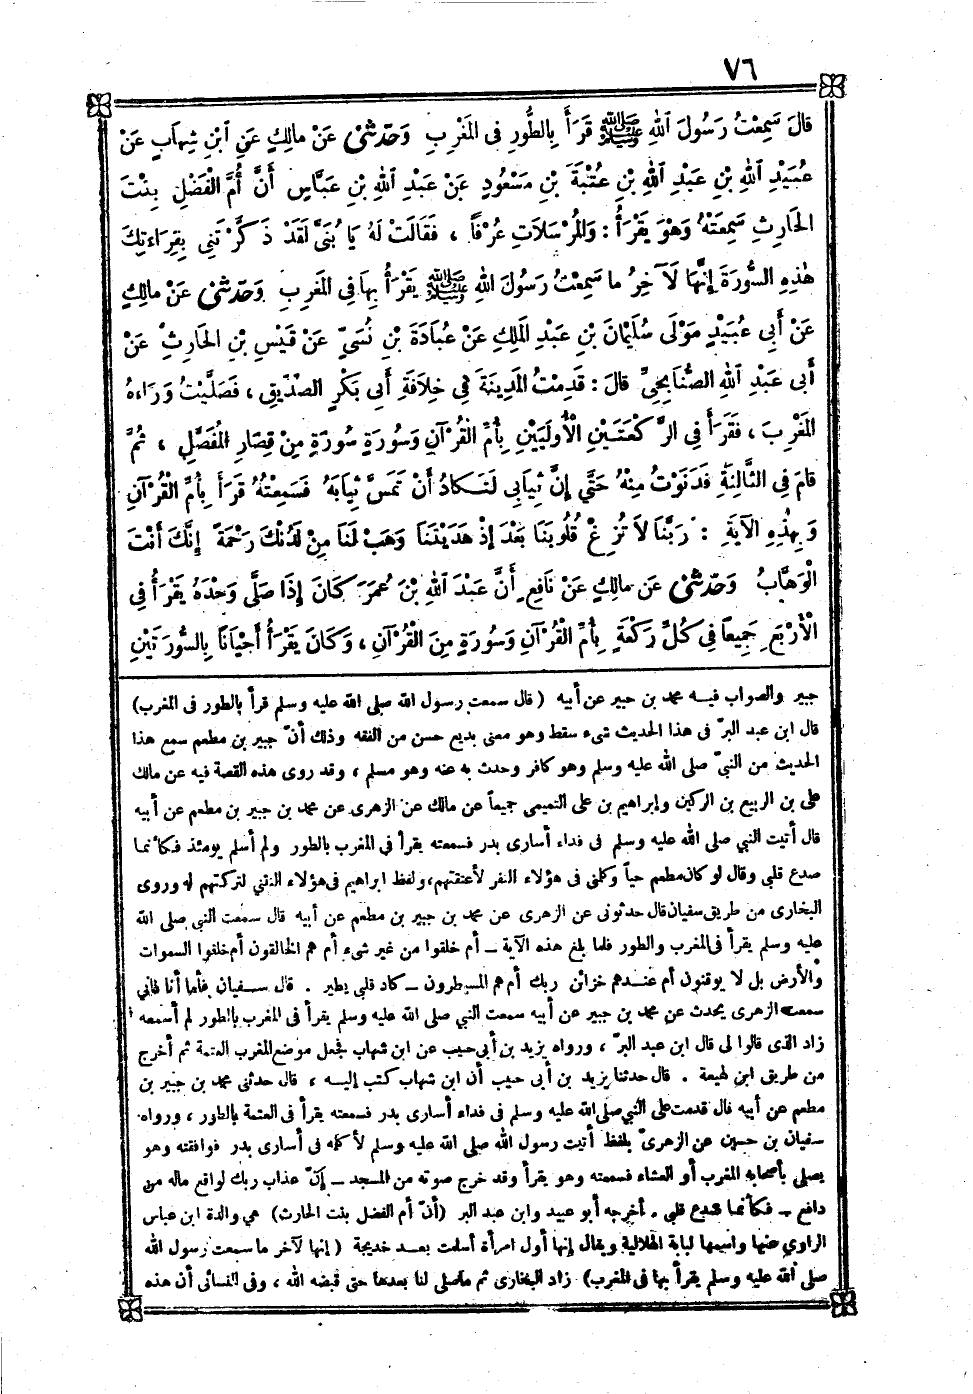 ٧٦
قَالَ سَمِعْتُ رَسُولَ اللهِ ﷺ قَرَأَ بِالطُّورِ فِى الْمَغْرِبِ وَحَدَّثَنِى عَنْ مَالِكٍ عَنِ ابْنِ شِهَابٍ عَنْ
عُبَيْدِ اللهِ بْنِ عَبْدِ اللهِ بْنِ عُتْبَةَ بْنِ مَسْعُودٍ عَنْ عَبْدِ اللهِ بْنِ عَبَّاسٍ أَنَّ أُمَّ الْفَضْلِ بِنْتَ
الْحَارِثِ سَمِعَتْهُ وَهُوَ يَقْرَأُ : وَالْمُرْسَلَاتِ عُرْفًا ، فَقَالَتْ لَهُ يَا بُنَىَّ لَقَدْ ذَكَّرْتَنِى بِقِرَاءَتِكَ
هٰذِهِ السُّورَةَ إِنَّهَا لَآخِرُ مَا سَمِعْتُ رَسُولَ اللهِ ﷺ يَقْرَأُ بِهَا فِى الْمَغْرِبِ وَحَدَّثَنِى عَنْ مَالِكٍ
عَنْ أَبِى عُبَيْدٍ مَوْلَى سُلَيْمَانَ بْنِ عَبْدِ الْمَلِكِ عَنْ عُبَادَةَ بْنِ نُسَىٍّ عَنْ قَيْسِ بْنِ الْحَارِثِ عَنْ
أَبِى عَبْدِ اللهِ الصُّنَابِحِىِّ قَالَ : قَدِمْتُ الْمَدِينَةَ فِى خِلَافَةِ أَبِى بَكْرٍ الصِّدِّيقِ ، فَصَلَّيْتُ وَرَاءَهُ
الْمَغْرِبَ ، فَقَرَأَ فِى الرَّكْعَتَيْنِ الْأُولَيَيْنِ بِأُمِّ الْقُرْآنِ وَسُورَةٍ سُورَةٍ مِنْ قِصَارِ الْمُفَصَّلِ ، ثُمَّ
قَامَ فِى الثَّالِثَةِ فَدَنَوْتُ مِنْهُ حَتَّى إِنَّ ثِيَابِى لَتَكَادُ أَنْ تَمَسَّ ثِيَابَهُ فَسَمِعْتُهُ قَرَأَ بِأُمِّ الْقُرْآنِ
وَبِهٰذِهِ الآيَةِ : رَبَّنَا لَا تُزِغْ قُلُوبَنَا بَعْدَ إِذْ هَدَيْتَنَا وَهَبْ لَنَا مِنْ لَدُنْكَ رَحْمَةً إِنَّكَ أَنْتَ
الْوَهَّابُ وَحَدَّثَنِى عَنْ مَالِكٍ عَنْ نَافِعٍ أَنَّ عَبْدَ اللهِ بْنَ عُمَرَ كَانَ إِذَا صَلَّى وَحْدَهُ يَقْرَأُ فِى
الْأَرْبَعِ جَمِيعًا فِى كُلِّ رَكْعَةٍ بِأُمِّ الْقُرْآنِ وَسُورَةٍ مِنَ الْقُرْآنِ ، وَكَانَ يَقْرَأُ أَحْيَانًا بِالسُّورَتَيْنِ
جبير والصواب فيه محمد بن جبير عن أبيه (قال سمعت رسول الله صلى الله عليه وسلم قرأ بالطور فى المغرب)
قال ابن عبد البرّ فى هذا الحديث شىء سقط وهو معنى بديع حسن من الفقه وذلك أنّ جبير بن مطعم سمع هذا
الحديث من النبىّ صلى الله عليه وسلم وهو كافر وحدث به عنه وهو مسلم ، وقد روى هذه القصة فيه عن مالك
على بن الربيع بن الركين وإبراهيم بن على التميمى جميعاً عن مالك عن الزهرى عن محمد بن جبير بن مطعم عن أبيه
قال أتيت النبي صلى الله عليه وسلم فى فداء أسارى بدر فسمعته يقرأ فى المغرب بالطور ولم أسلم يومئذ فكأنما
صدع قلبى وقال لو كان مطعم حياً وكلمنى فى هؤلاء النفر لأعتقتهم، ولفظ ابراهيم فى هؤلاء النتنى لتركتهم له وروى
البخارى من طريق سفيان قال حدثونى عن الزهرى عن محمد بن جبير بن مطعم عن أبيه قال سمعت النبى صلى الله
عليه وسلم يقرأ فى المغرب والطور فلما بلغ هذه الآية ــ أم خلقوا من غير شىء أم هم الخالقون أم خلقوا السموات
والأرض بل لا يوقنون أم عندهم خزائن ربك أم هم المسيطرون ــ كاد قلبى يطير . قال سفيان فأما أنا فانى
سمعت الزهرى يحدث عن محمد بن جبير عن أبيه سمعت النبي صلى الله عليه وسلم يقرأ فى المغرب بالطور لم أسمعه
زاد الذى قالوا لى قال ابن عبد البرّ ، ورواه يزيد بن أبى حبيب عن ابن شهاب فجعل موضع المغرب العتمة ثم أخرج
من طريق ابن لهيعة . قال حدثنا يزيد بن أبى حبيب أن ابن شهاب كتب إليه ، قال حدثنى محمد بن جبير بن
مطعم عن أبيه قال قدمت على النبى صلى الله عليه وسلم فى فداء أسارى بدر فسمعته يقرأ فى العتمة بالطور ، ورواه
سفيان بن حسين عن الزهرىّ بلفظ أتيت رسول الله صلى الله عليه وسلم لأكلمه فى أسارى بدر فوافقته وهو
يصلى بأصحابه المغرب أو العشاء فسمعته وهو يقرأ وقد خرج صوته من المسجد ــ إنّ عذاب ربك لواقع ماله من
دافع ــ فكأنما صدع قلبى . أخرجه أبو عبيد وابن عبد البر (أنّ أم الفضل بنت الحارث) هى والدة ابن عباس
الراوي عنها واسمها لبابة الهلالية ويقال إنها أول امرأة أسلمت بعد خديجة (إنها لآخر ما سمعت رسول الله
صلى الله عليه وسلم يقرأ بها فى المغرب) زاد البخارى ثم ماصلى لنا بعدها حتى قبضه الله ، وفى النسائى أن هذه